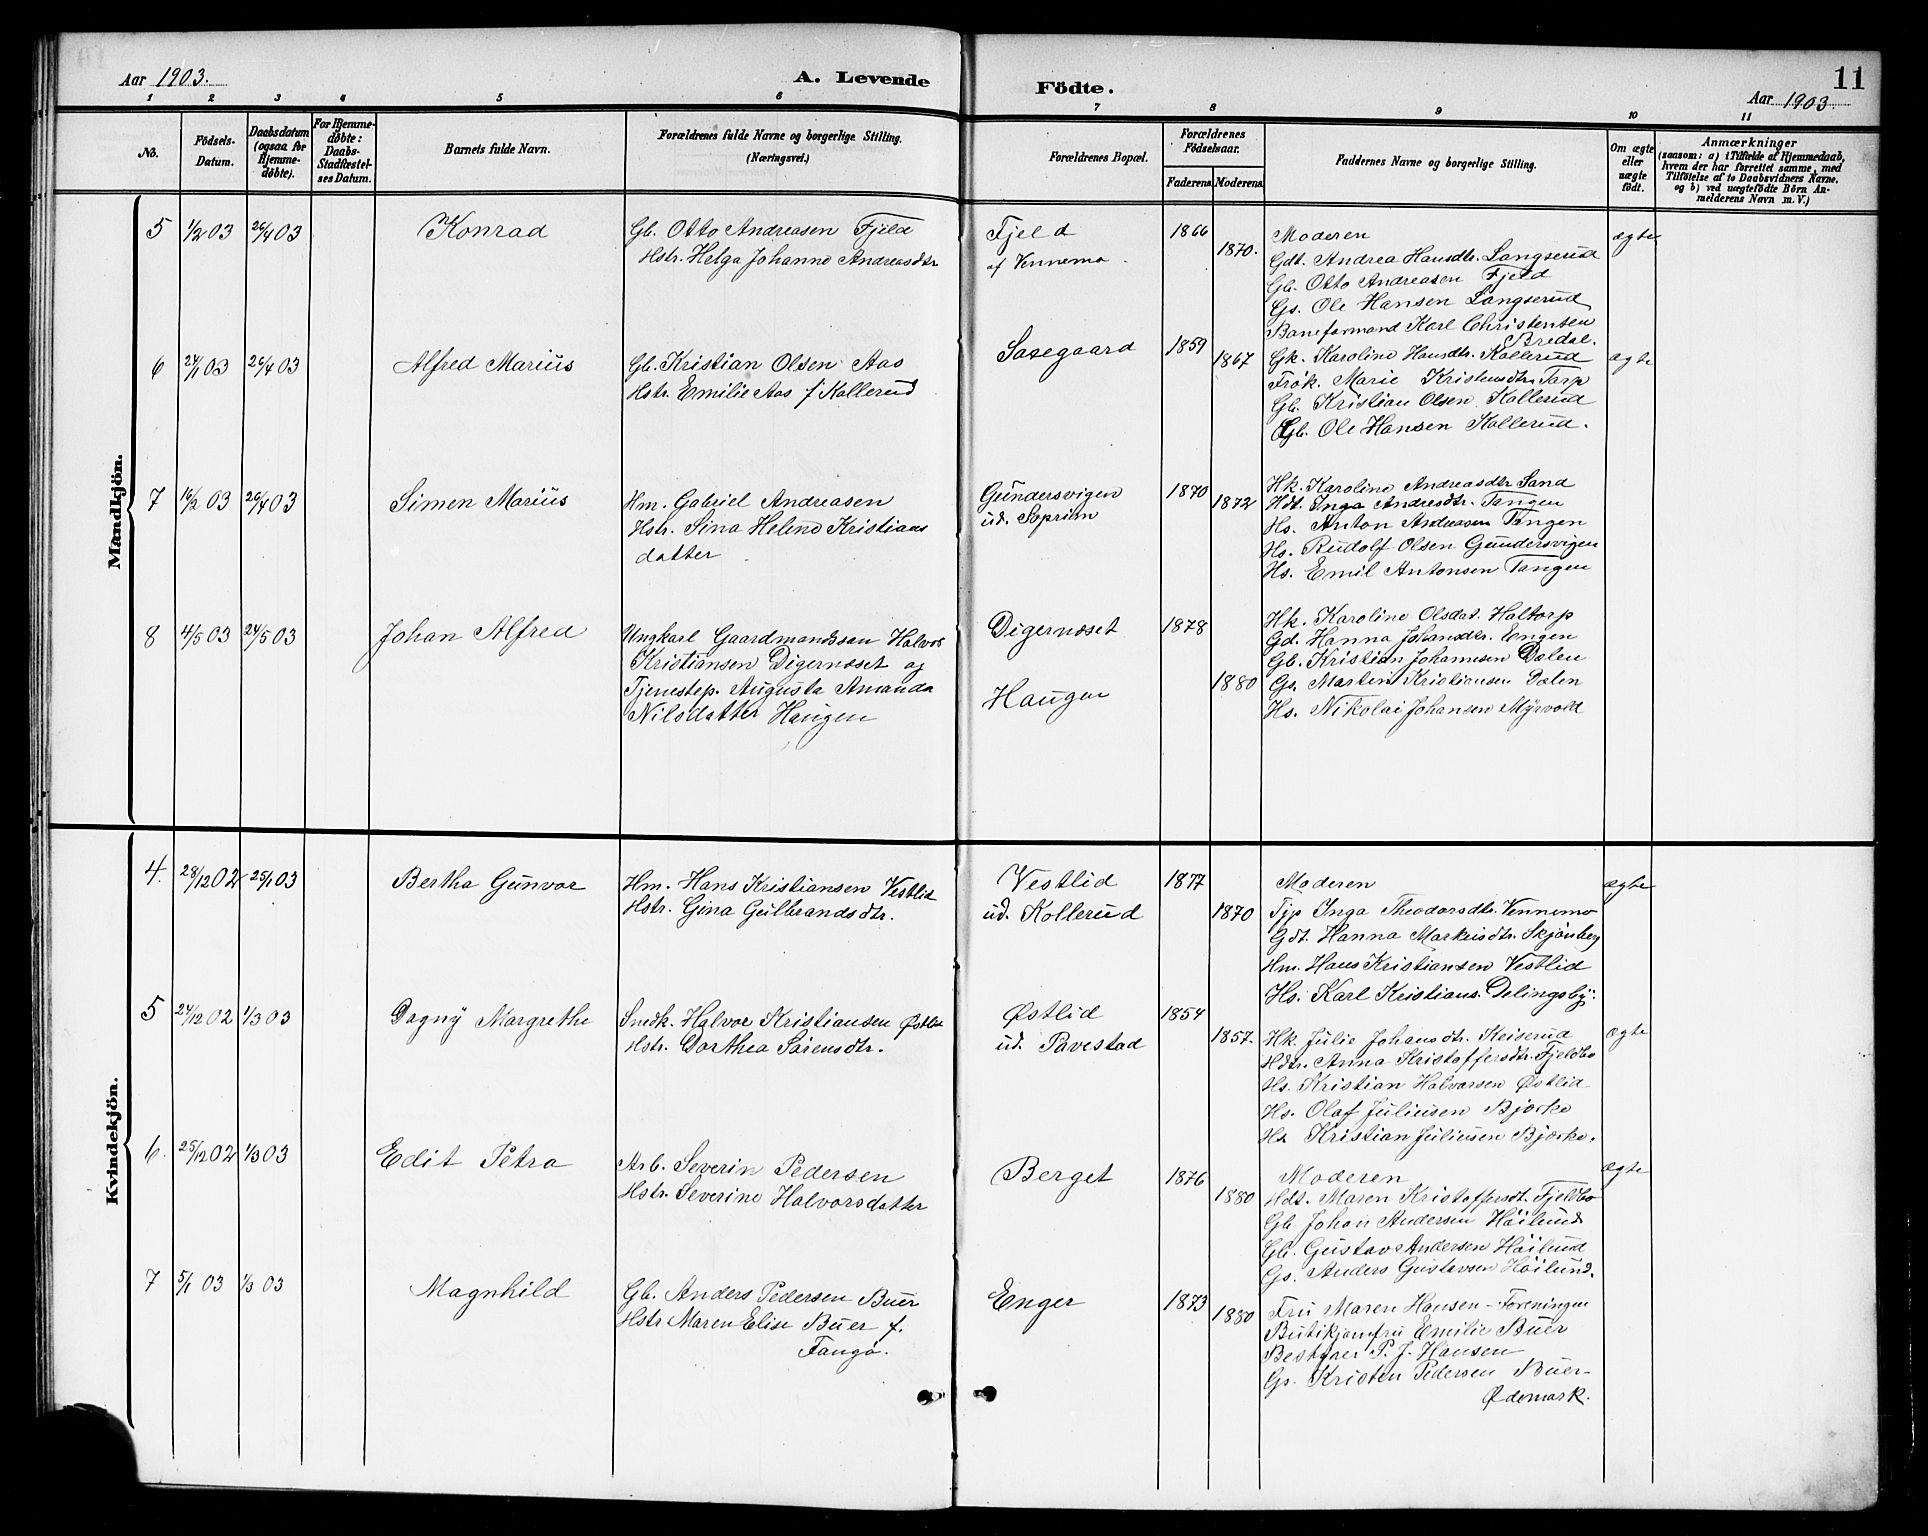 Aar 1903.
A. Levende
Födte.
11
Aar 1903.
1 2 3 4 5 6 7 8 9 10 11
No.
Födsels-
Datum.
Daabsdatum
(ogsaa for
Hjemme-
döbte).
For Hjemme-
döbte:
Daabs-
Stadfæstel-
ses Datum.
Barnets fulde Navn.
Forældrenes fulde Navne og borgerlige Stilling.
(Næringsvei.)
Forældrenes Bopæl.
Forældrenes
Födselsaar.
Faderens. Moderens.
Faddernes Navne og borgerlige Stilling.
Om ægte
eller
uægte
födt.
Anmærkninger
(saasom: a) i Tilfælde af Hjemmedaab,
hvem der har forrettet samme, med
Tilföielse af to Daabsvidners Navne,
og b) ved uægtefödte Börn An-
melderens Navn m. V.)
Mandkjön.
5 1/2 03 26/4 03 Konrad
Gb. Otto Andreasen Fjeld
Hstr. Helga Johanne Andreasdtr
Fjeld
af Vennemo
1866 1870.
Moderen
Gdt. Andrea Hansdtr. Langserud
Gb. Otto Andreasen Fjeld
Gs. Ole Hansen Langserud
Baneformand Karl Christensen
Bredal.
ægte
6 24/1 03 26/4 03 Alfred Marius
Gb. Kristian Olsen Aas
Hstr. Emilie Aas f. Kollerud
Sasegaard
1859 1867
Gk. Karoline Hansdtr. Kollerud
Frøk. Marie Kristensdtr. Tarp
Gb. Kristian Olsen Kollerud
Gb. Ole Hansen Kollerud.
ægte
7 16/2 03 26/4 03 Simen Marius
Hm. Gabriel Andreasen
Hstr. Sina Helene Kristians
datter
Gundersvigen
ud. Søprim
1870 1872
Hk. Karoline Andreasdtr Sand
Hdt. Inga Andreasdtr. Tangen
Hs. Anton Andreasen Tangen
Hs. Rudolf Olsen Gundersvigen
Hs. Emil Antonsen Tangen
8 4/5 03 24/5 03 Johan Alfred
Ungkarl Gaardmandssøn Halvor
Kristiansen Digernæset og
Tjenestep. Augusta Amanda
Nilsdatter Haugen
Digernæset
Haugen
1878 1880
Hk. Karoline Olsdat. Haltorp
Gd. Hanna Johansdtr. Engen
Gb. Kristian Johannesen Dalen
Gs. Martin Kristiansen Dalen
Hs. Nikolai Johansen Myrvold
Kvindekjön.
4. 28/12 02 25/1 03 Bertha Gunvor
Hm. Hans Kristiansen Vestlid
Hstr. Gina Gulbrandsdtr.
Vestlid
ud. Kollerud
1877 1870
Moderen
Tjp Inga Theodorsdtr. Vennemo
Gdt. Hanna Markusdtr. Skjønberg
Hm. Hans Kristiansen Vestlid
Hs. Karl Kristians. Delingsby.
ægte
5 24/12 02 1/3 03 Dagny Margrethe
Snedk. Halvor Kristiansen Østlid
Hstr. Dorthea Sørensdtr.
Østlid
ud. Pavestad
1854 1857.
Hk. Julie Johansdtr. Keiserud
Hdtr. Anna Kristoffersdtr. Fjeldbo
Hs. Kristian Halvorsen Østlid
Hs. Olaf Juliusen Bjørke
Hs. Kristian Juliusen Bjørke.
ægte
6. 25/12 02 1/3 03 Edit Petra
Arb. Severin Pedersen
Hstr. Severine Halvorsdatter
Berget
1876 1880
Moderen
Hdt. Maren Kristoffersdt. Fjeldbo
Gb Johan Andersen Høilund
Gb. Gustav Andersen Høilund
Gs. Anders Gustavsen Høilund.
ægte
7 5/1 03 1/3 03 Magnhild
Gb. Anders Pedersen Buer
Hstr Maren Elise Buer f.
Tangø.
Enger
1873 1880
Fru Maren Hansen - Foreningen
Butikjomfru Emilie Buer
Bestyrer P. J. Hansen
Gs. Kristen Pedersen Buer-
Ødemark.